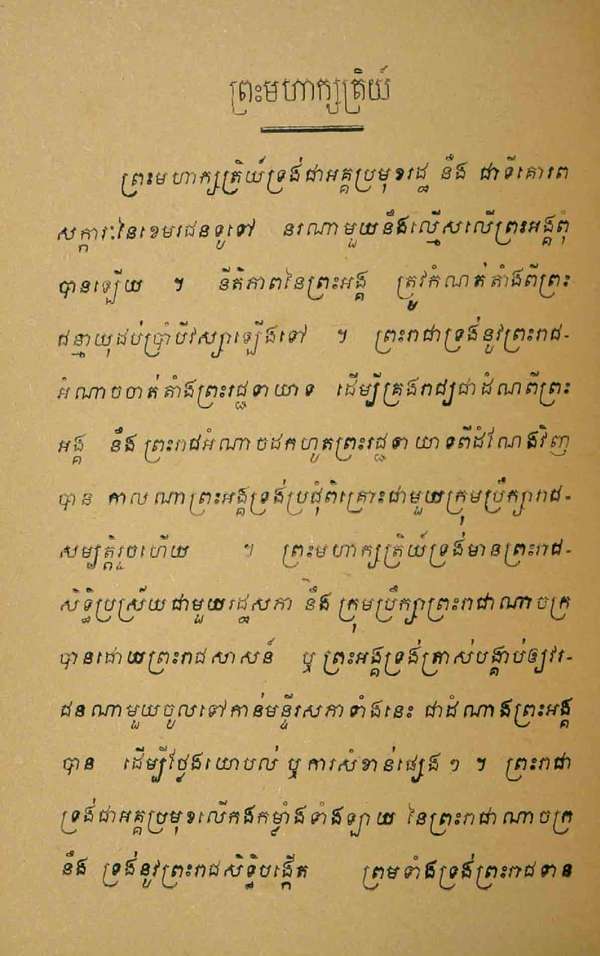 ព្រះមហាក្សត្រិយ៍
ព្រះមហាក្សត្រិយ៍ទ្រង់ជាអគ្គប្រមុខរដ្ឋ នឹង ជាទីគោរព
សក្ការៈនៃខេមរជនទូទៅ នរណាមួយនឹងល្មើសលើព្រះអង្គពុំ
បានឡើយ ។ នីតិភាពនៃព្រះអង្គ ត្រូវកំណត់តាំងពីព្រះ
ជន្មាយុដប់ប្រាំបីវស្សាឡើងទៅ ។ ព្រះរាជាទ្រង់នូវព្រះរាជ-
អំណាចចាត់តាំងព្រះរជ្ជទាយាទ ដើម្បីគ្រងរាជ្យជាដំណពីព្រះ
អង្គ នឹង ព្រះរាជអំណាចដកហូតព្រះរជ្ជទាយាទពីដំណែងវិញ
បាន កាលណាព្រះអង្គទ្រង់ប្រជុំពិគ្រោះជាមួយក្រុមប្រឹក្សារាជ-
សម្បត្តិរួចហើយ ។ ព្រះមហាក្សត្រិយ៍ទ្រង់មានព្រះរាជ-
សិទ្ធិប្រស្រ័យជាមួយរដ្ឋសភា នឹង ក្រុមប្រឹក្សាព្រះរាជាណាចក្រ
បានដោយព្រះរាជសាសន៍ ឬ ព្រះអង្គទ្រង់ត្រាស់បង្គាប់ឲ្យវរ-
ជនណាមួយចូលទៅកាន់មន្ទីរសភាទាំងនេះ ជាដំណាងព្រះអង្គ
បាន ដើម្បីថ្លែងយោបល់ ឬ ការសំខាន់ផ្សេង ៗ ។ ព្រះរាជា
ទ្រង់ជាអគ្គប្រមុខលើកងកម្លាំងទាំងឡាយ នៃព្រះរាជាណាចក្រ
នឹង ទ្រង់នូវព្រះរាជសិទ្ធិបង្កើត ព្រមទាំងទ្រង់ព្រះរាជទាន